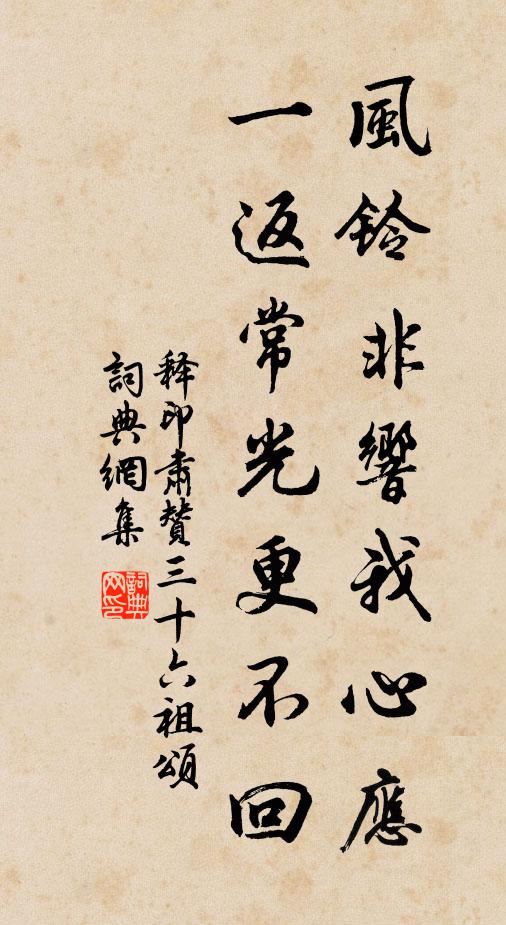 風鈴非響我心應
一返常光更不回
释印肅贊三十六祖頌
詞典網集
詞典网印